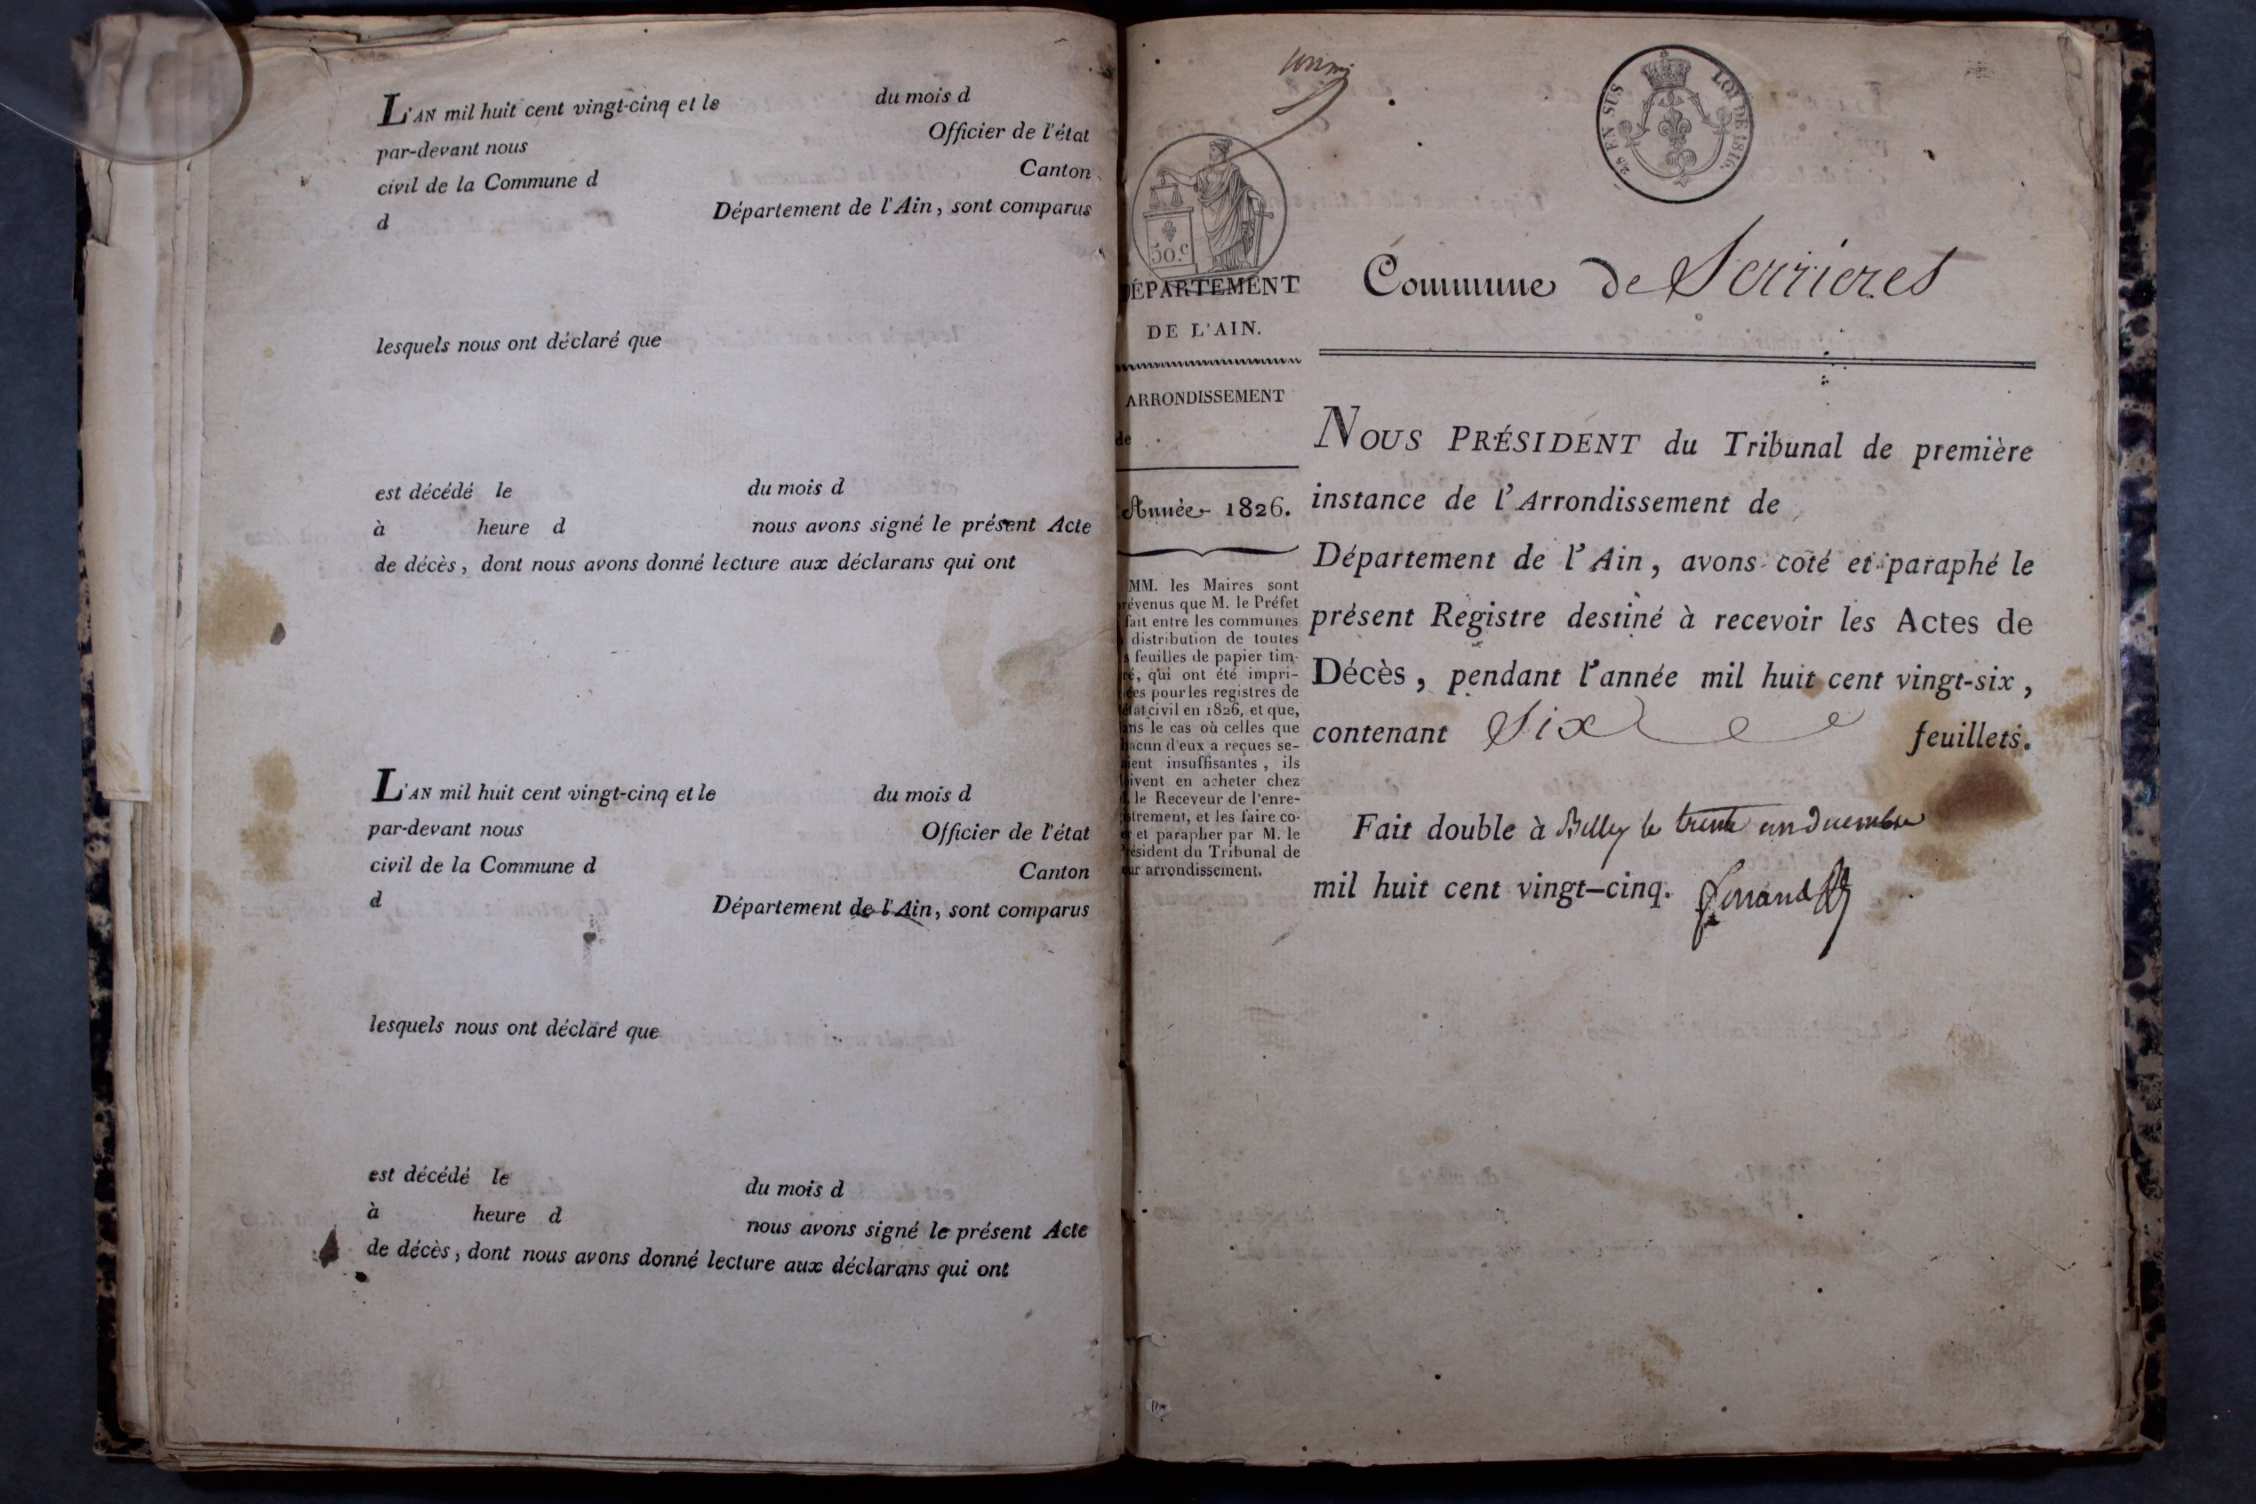 L'AN mil huit cent vingt-cinq et le du mois d
par-devant nous Officier de l'état
civil de la Commune d Canton
d Département de l'Ain, sont comparus
lesquels nous ont déclaré que
est décédé le du mois d
à heure d nous avons signé le présent Acte
de décès, dont nous avons donné lecture aux déclarans qui ont
L'AN mil huit cent vingt-cinq et le du mois d
par-devant nous Officier de l'état
civil de la Commune d Canton
d Département de l'Ain, sont comparus
lesquels nous ont déclaré que
est décédé le du mois d
à heure d nous avons signé le présent Acte
de décès, dont nous avons donné lecture aux déclarans qui ont
EN SUS LOI DE 1816.
50.c
DÉPARTEMENT
DE L'AIN.
ARRONDISSEMENT
de
Année 1826.
MM. les Maires sont
révenus que M. le Préfet
fait entre les communes
distribution de toutes
feuilles de papier tim-
ré, qui ont été impri-
ées pour les registres de
état civil en 1826, et que,
ans le cas où celles que
hacun d'eux a reçues se-
ient insuffisantes, ils
oivent en acheter chez
le Receveur de l'enre-
istrement, et les faire co-
er et parapher par M. le
résident du Tribunal de
eur arrondissement.
Commune de Serrieres
NOUS PRÉSIDENT du Tribunal de première
instance de l'Arrondissement de
Département de l'Ain, avons coté et paraphé le
présent Registre destiné à recevoir les Actes de
Décès, pendant l'année mil huit cent vingt-six,
contenant Six feuillets.
Fait double à Belley le trente un decembre
mil huit cent vingt-cinq.